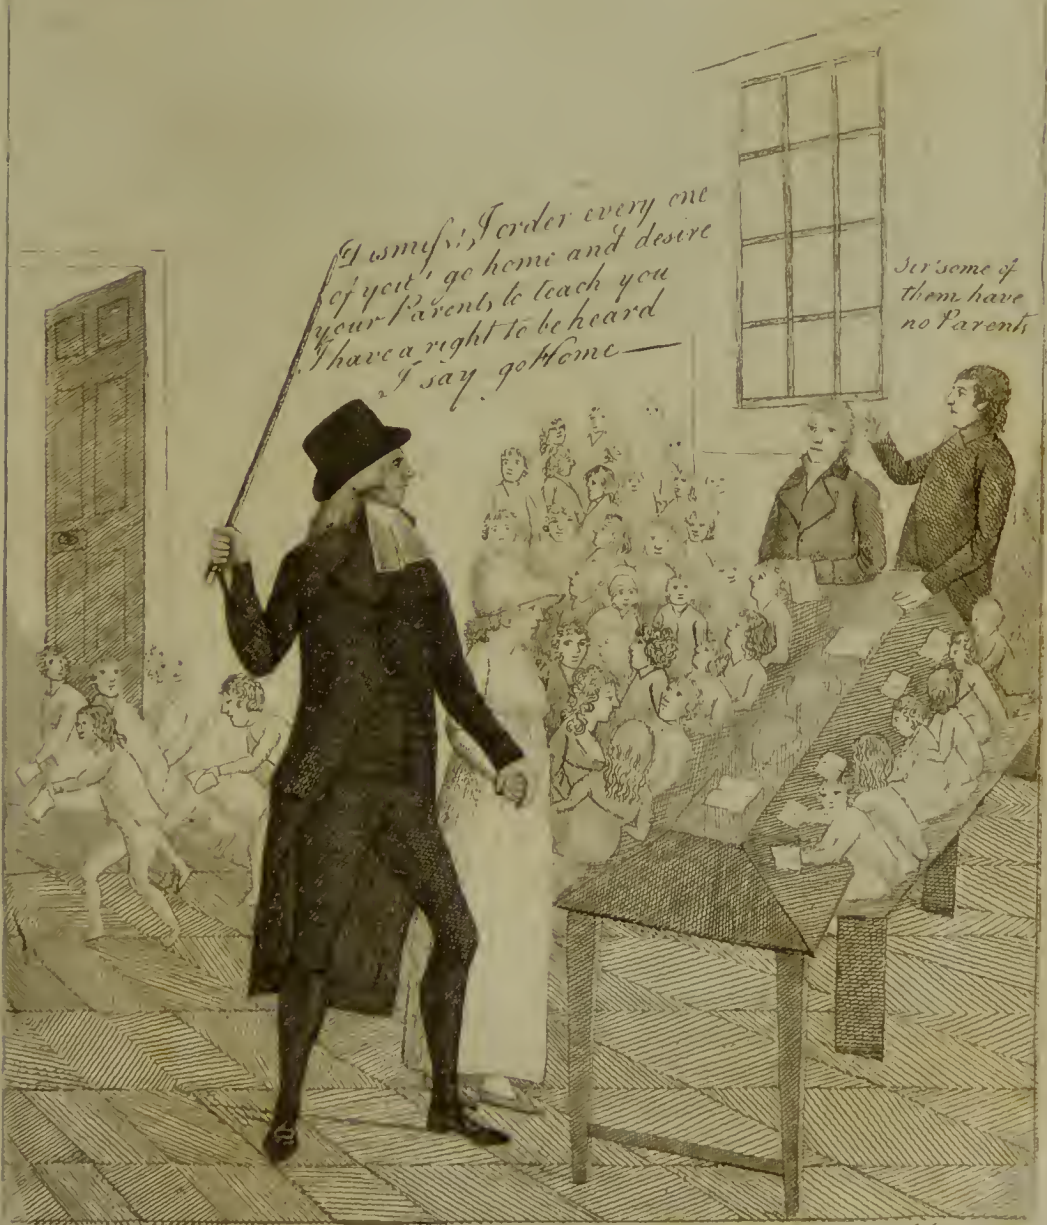 Dismiſs!, I order every one
of you! go home and desire
your Parents to teach you
I have a right to be heard
I say go Home —
Sir some of
them have
no Parents